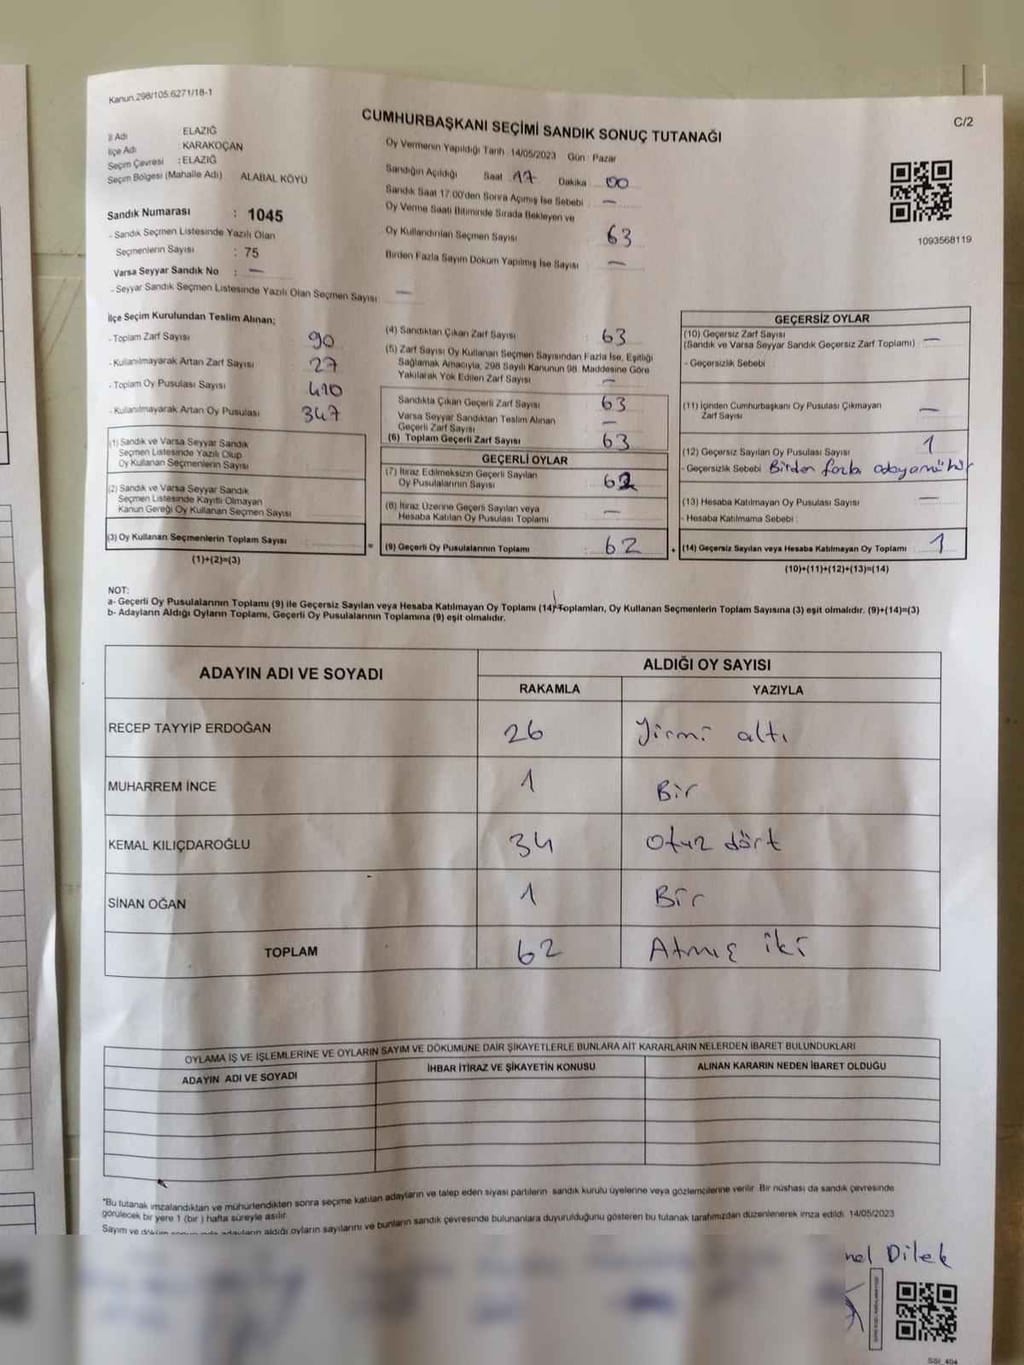 Kanun.298/105.6271/18-1
C/2
CUMHURBAŞKANI SEÇİMİ SANDIK SONUÇ TUTANAĞI
İl Adı ELAZIĞ
İlçe Adı : KARAKOÇAN
Seçim Çevresi : ELAZIĞ
Seçim Bölgesi (Mahalle Adı) ALABAL KÖYÜ
Oy Vermenin Yapıldığı Tarih 14/05/2023 Gün : Pazar
Sandığın Açıldığı Saat 17 Dakika 00
Sandık Saat 17.00'den Sonra Açımış İse Sebebi —
Oy Verme Saati Bitiminde Sırada Bekleyen ve
Oy Kullandırılan Seçmen Sayısı 63
Birden Fazla Sayım Döküm Yapılmış İse Sayısı —
1093568119
Sandık Numarası : 1045
- Sandık Seçmen Listesinde Yazılı Olan
Seçmenlerin Sayısı : 75
Varsa Seyyar Sandık No : —
- Seyyar Sandık Seçmen Listesinde Yazılı Olan Seçmen Sayısı —
İlçe Seçim Kurulundan Teslim Alınan;
- Toplam Zarf Sayısı 90
- Kullanılmayarak Artan Zarf Sayısı 27
- Toplam Oy Pusulası Sayısı 410
- Kullanılmayarak Artan Oy Pusulası 347
(1) Sandık ve Varsa Seyyar Sandık
Seçmen Listesinde Yazılı Olup
Oy Kullanan Seçmenlerin Sayısı
(2) Sandık ve Varsa Seyyar Sandık
Seçmen Listesinde Kayıtlı Olmayan
Kanun Gereği Oy Kullanan Seçmen Sayısı
(3) Oy Kullanan Seçmenlerin Toplam Sayısı
(1)+(2)=(3)
(4) Sandıktan Çıkan Zarf Sayısı 63
(5) Zarf Sayısı Oy Kullanan Seçmen Sayısından Fazla İse, Eşitliği
Sağlamak Amacıyla, 298 Sayılı Kanunun 98. Maddesine Göre
Yakılarak Yok Edilen Zarf Sayısı —
Sandıkta Çıkan Geçerli Zarf Sayısı 63
Varsa Seyyar Sandıktan Teslim Alınan
Geçerli Zarf Sayısı —
(6) Toplam Geçerli Zarf Sayısı 63
GEÇERLİ OYLAR
(7) İtiraz Edilmeksizin Geçerli Sayılan
Oy Pusulalarının Sayısı 62
(8) İtiraz Üzerine Geçerli Sayılan veya
Hesaba Katılan Oy Pusulası Toplamı —
= (9) Geçerli Oy Pusulalarının Toplamı 62
GEÇERSİZ OYLAR
(10) Geçersiz Zarf Sayısı
(Sandık ve Varsa Seyyar Sandık Geçersiz Zarf Toplamı) —
- Geçersizlik Sebebi
(11) İçinden Cumhurbaşkanı Oy Pusulası Çıkmayan
Zarf Sayısı —
(12) Geçersiz Sayılan Oy Pusulası Sayısı 1
- Geçersizlik Sebebi Birden fazla adaya mühür
(13) Hesaba Katılmayan Oy Pusulası Sayısı —
- Hesaba Katılmama Sebebi :
+ (14) Geçersiz Sayılan veya Hesaba Katılmayan Oy Toplamı 1
(10)+(11)+(12)+(13)=(14)
NOT:
a- Geçerli Oy Pusulalarının Toplamı (9) ile Geçersiz Sayılan veya Hesaba Katılmayan Oy Toplamı (14) Toplamları, Oy Kullanan Seçmenlerin Toplam Sayısına (3) eşit olmalıdır. (9)+(14)=(3)
b- Adayların Aldığı Oyların Toplamı, Geçerli Oy Pusulalarının Toplamına (9) eşit olmalıdır.
ADAYIN ADI VE SOYADI
ALDIĞI OY SAYISI
RAKAMLA YAZIYLA
RECEP TAYYİP ERDOĞAN 26 Yirmi altı
MUHARREM İNCE 1 Bir
KEMAL KILIÇDAROĞLU 34 Otuz dört
SİNAN OĞAN 1 Bir
TOPLAM 62 Atmış iki
OYLAMA İŞ VE İŞLEMLERİNE VE OYLARIN SAYIM VE DÖKÜMÜNE DAİR ŞİKAYETLERLE BUNLARA AİT KARARLARIN NELERDEN İBARET BULUNDUKLARI
ADAYIN ADI VE SOYADI İHBAR İTİRAZ VE ŞİKAYETİN KONUSU ALINAN KARARIN NEDEN İBARET OLDUĞU
*Bu tutanak imzalandıktan ve mühürlendikten sonra seçime katılan adayların ve talep eden siyasi partilerin sandık kurulu üyelerine veya gözlemcilerine verilir. Bir nüshası da sandık çevresinde
görülecek bir yere 1 (bir) hafta süreyle asılır.
Sayım ve döküm adayların aldığı oyların sayılarını ve bunların sandık çevresinde bulunanlara duyurulduğunu gösteren bu tutanak tarafımızdan düzenlenerek imza edildi. 14/05/2023
nel Dilek